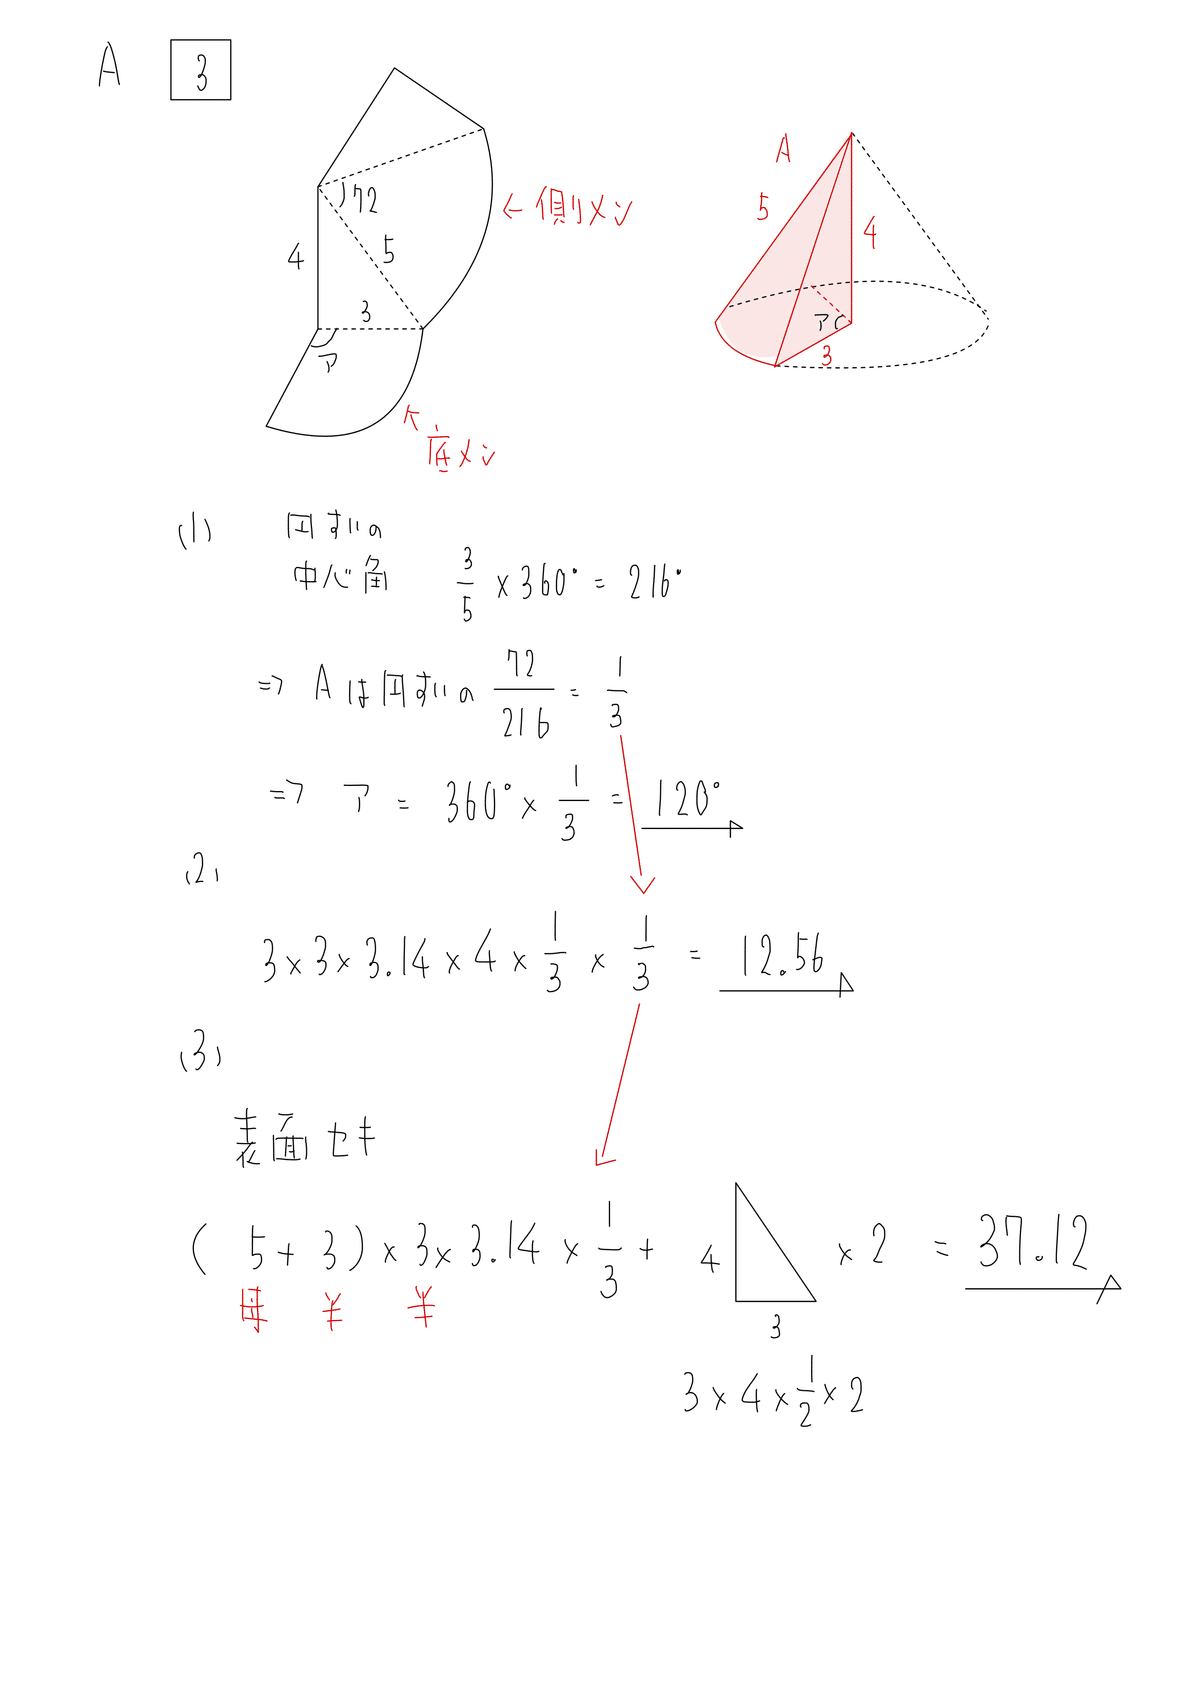 A 3
72
4
5
3
ア
←側メン
↖底メン
A
5
4
ア
3
(1) 円すいの
中心角 3/5 × 360° = 216°
⇒ Aは円すいの 72/216 = 1/3
⇒ ア = 360° × 1/3 = 120°
(2)
3 × 3 × 3.14 × 4 × 1/3 × 1/3 = 12.56
(3)
表面セキ
(5 + 3) × 3 × 3.14 × 1/3 + 4 3 × 2 = 37.12
母 半 半
3 × 4 × 1/2 × 2